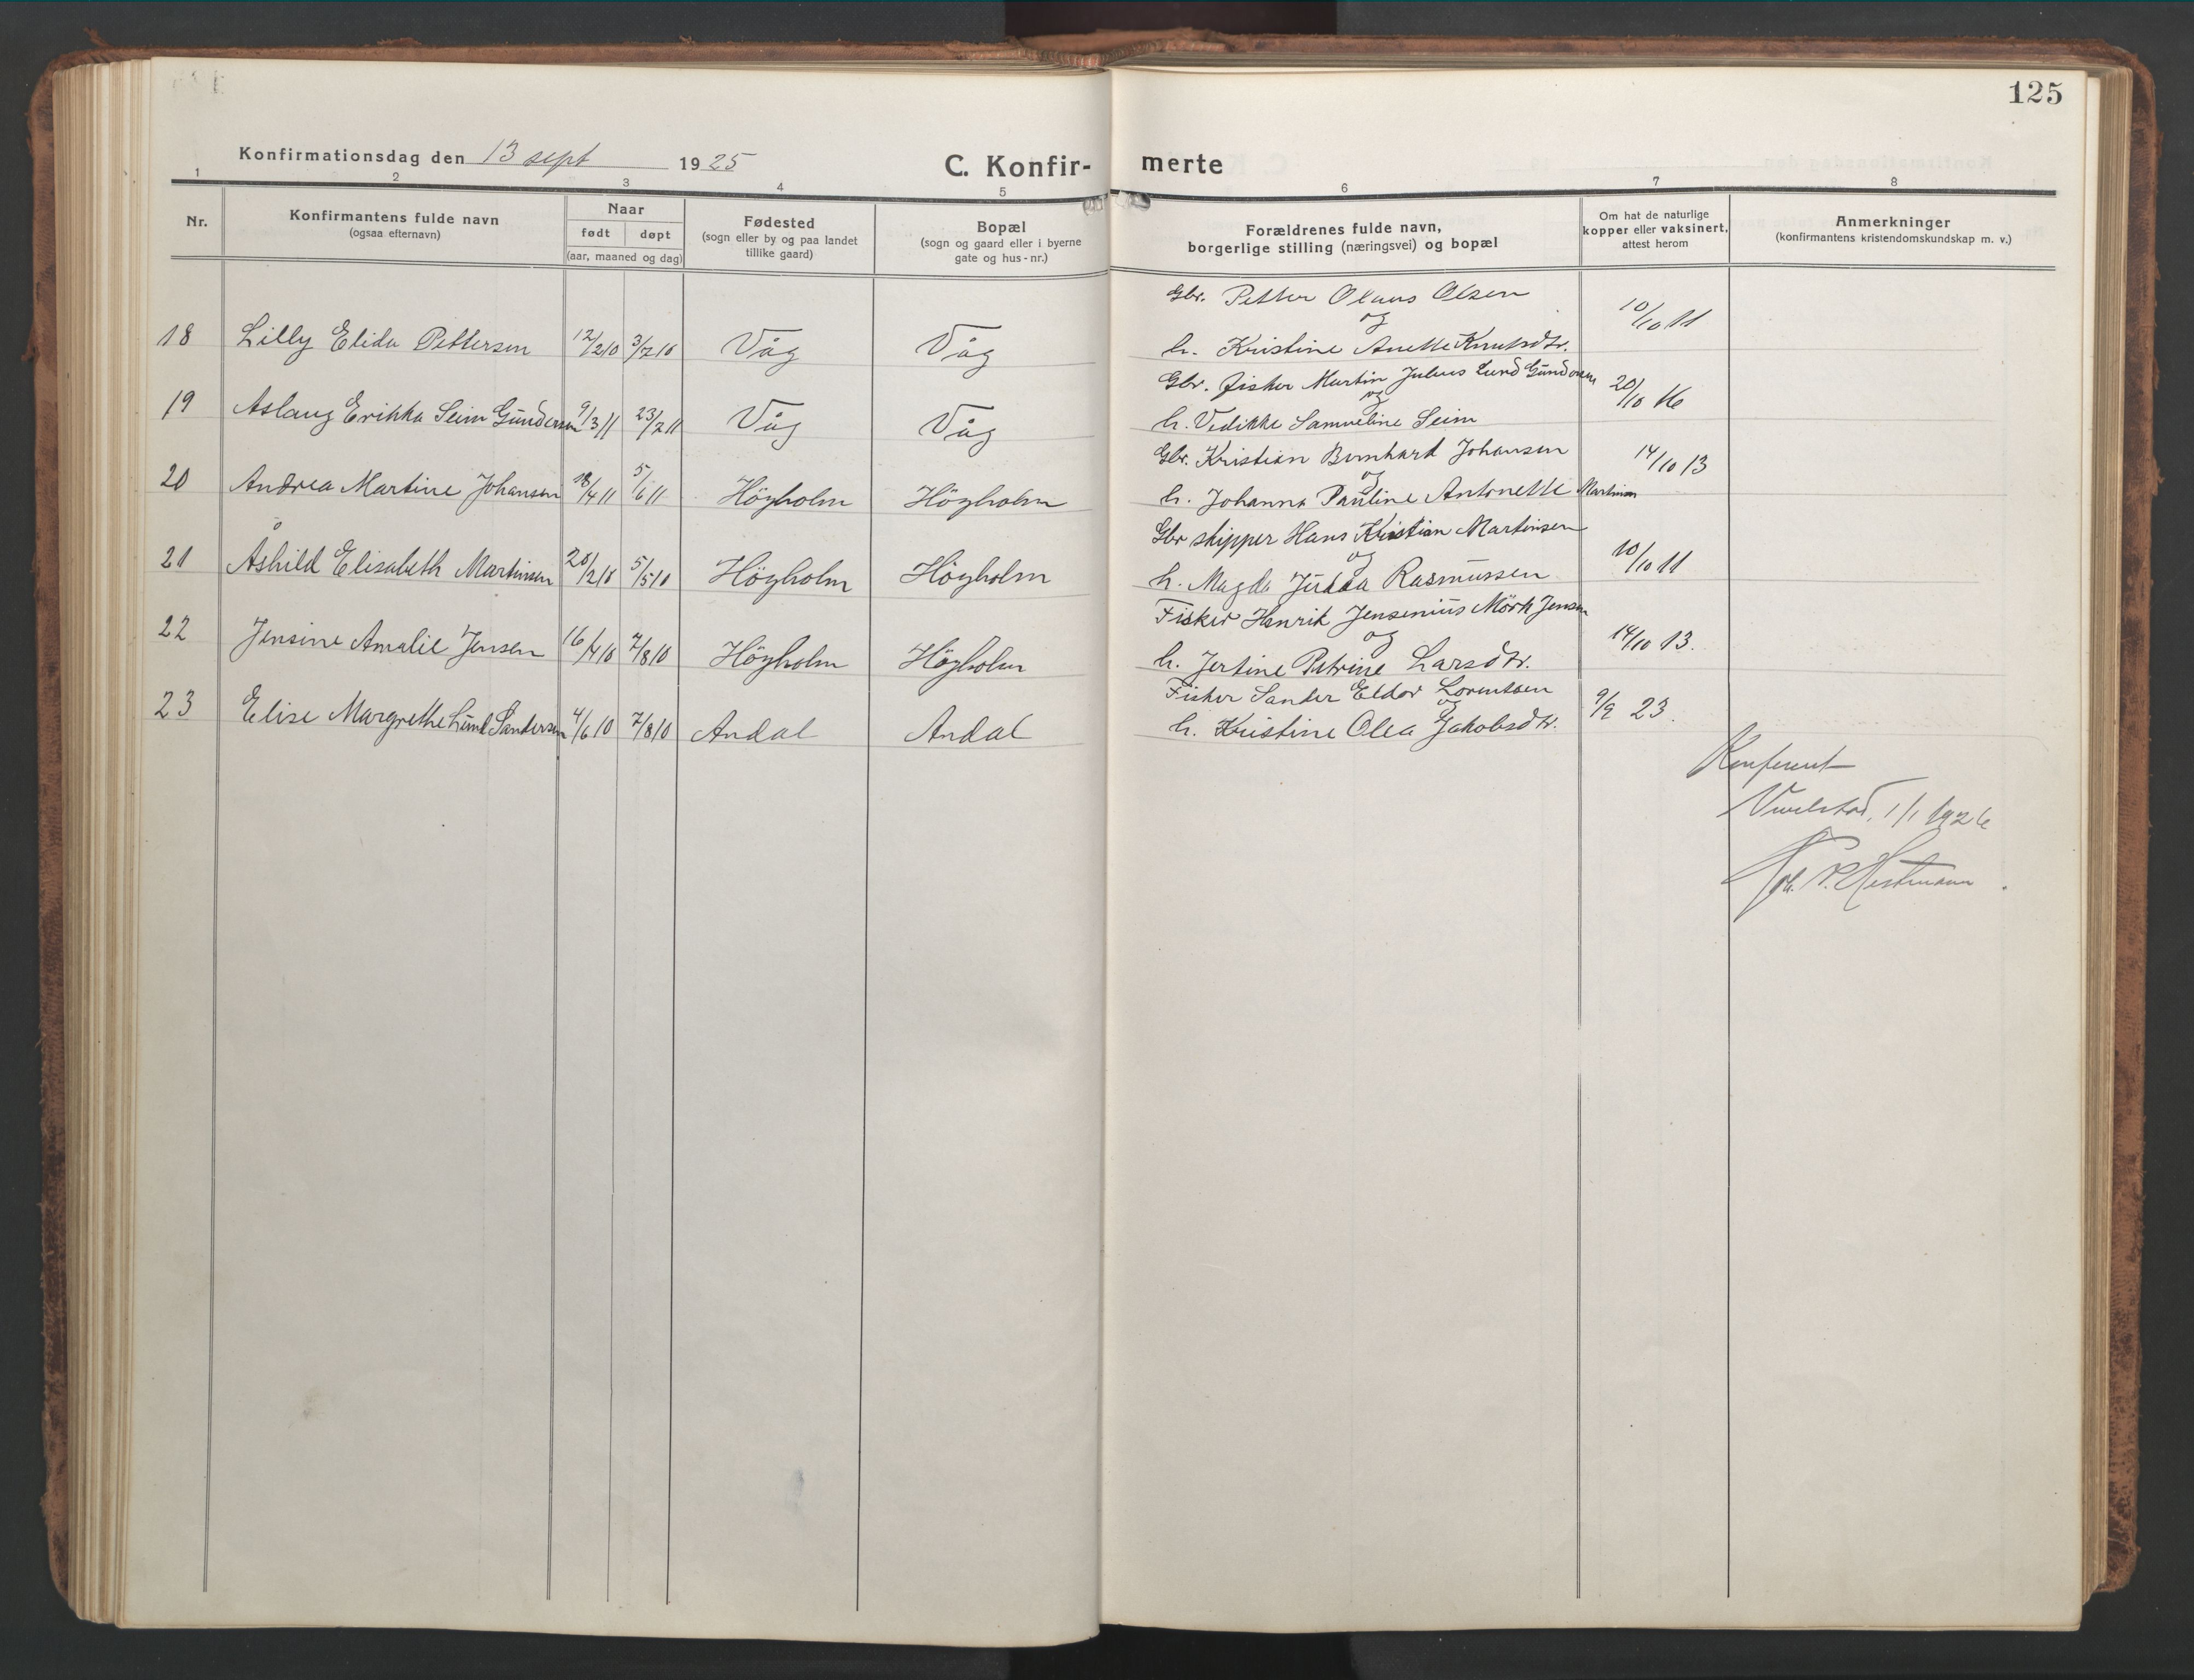 125
Konfirmationsdag den 13 sept 1925
C. Konfir- merte
1 2 3 4 5 6 7 8
Nr.
Konfirmantens fulde navn
(ogsaa efternavn)
Naar
født døpt
(aar, maaned og dag)
Fødested
(sogn eller by og paa landet
tillike gaard)
Bopæl
(sogn og gaard eller i byerne
gate og hus-nr.)
Forældrenes fulde navn,
borgerlige stilling (næringsvei) og bopæl
Om hat de naturlige
kopper eller vaksinert,
attest herom
Anmerkninger
(konfirmantens kristendomskundskap m. v.)
Gbr. Petter Olaus Olsen
og
18 Lilly Elida Pettersen 12/2 10 3/7 10 Våg Våg h. Kristine Anette Knutsdtr. 10/10 11
Gbr. fisker Martin Julius Lund Gundersen
og
19 Aslaug Erikka Seim Gundersen 9/3 11 23/7 11 Våg Våg h. Vedikke Samueline Seim 20/10 16
Gbr. Kristian Bernhard Johansen
og
20 Andrea Martine Johansen 18/4 11 5/6 11 Höyholm Höyholm h. Johanna Pauline Antonette Martinsen 14/10 13
Gbr skipper Hans Kristian Martinsen
og
21 Åshild Elisabeth Martinsen 20/2 10 5/5 10 Höyholm Höyholm h. Magda Judea Rasmussen 10/10 11
Fisker Henrik Jensenius Mörk Jensen
og
22 Jensine Amalie Jensen 16/4 10 7/8 10 Höyholm Höyholm h. Jertine Petrine Larsdtr. 14/10 13.
Fisker Sander Eldor Lorentsen
og
23 Elise Margrethe Lund Sandersen 4/6 10 7/8 10 Andal Andal h. Kristine Olea Jakobsdtr. 9/9 23.
Konferert
1/1 1926